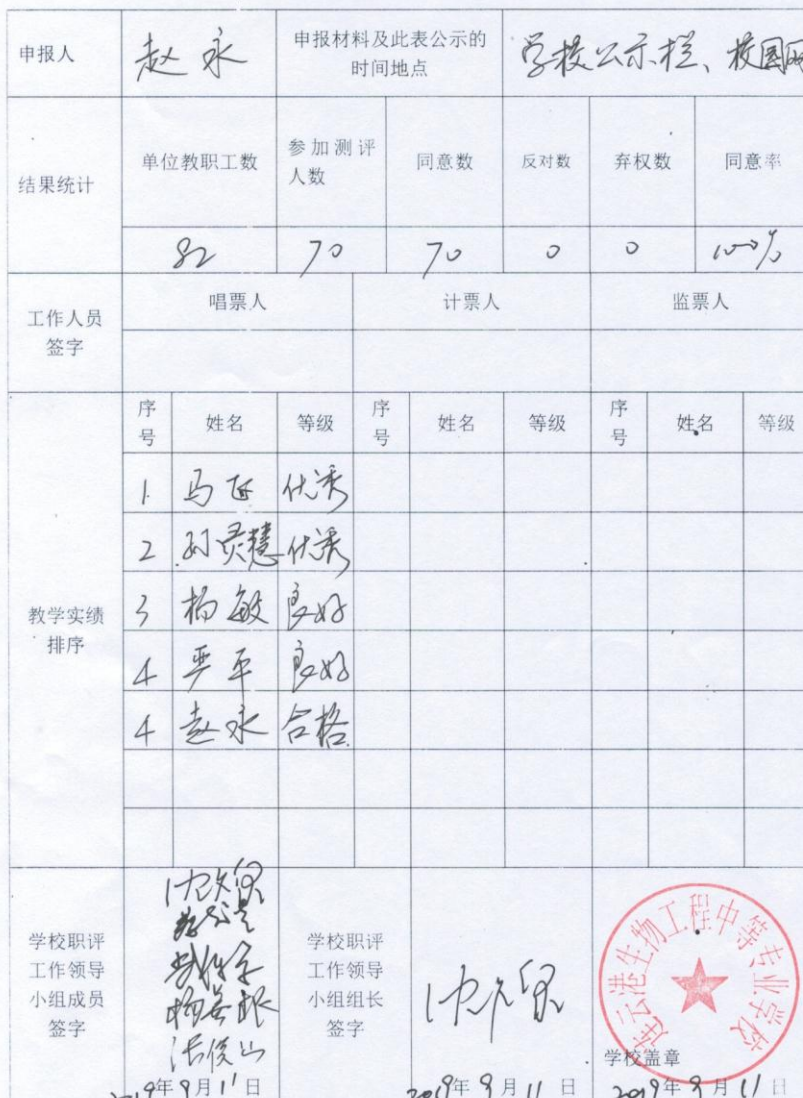 申报人 赵永 申报材料及此表公示的时间地点 学校公示栏、校园网
结果统计 单位教职工数 参加测评人数 同意数 反对数 弃权数 同意率
82 70 70 0 0 100%
工作人员签字 唱票人 计票人 监票人
教学实绩排序 序号 姓名 等级 序号 姓名 等级 序号 姓名 等级
1 马 优秀
2 孙灵慧 优秀
3 杨敏 良好
4 严平 良好
4 赵永 合格
学校职评工作领导小组成员签字
张俊山
2019年9月11日
学校职评工作领导小组组长签字
2019年9月11日
连云港生物工程中等专业学校
学校盖章
2019年9月11日